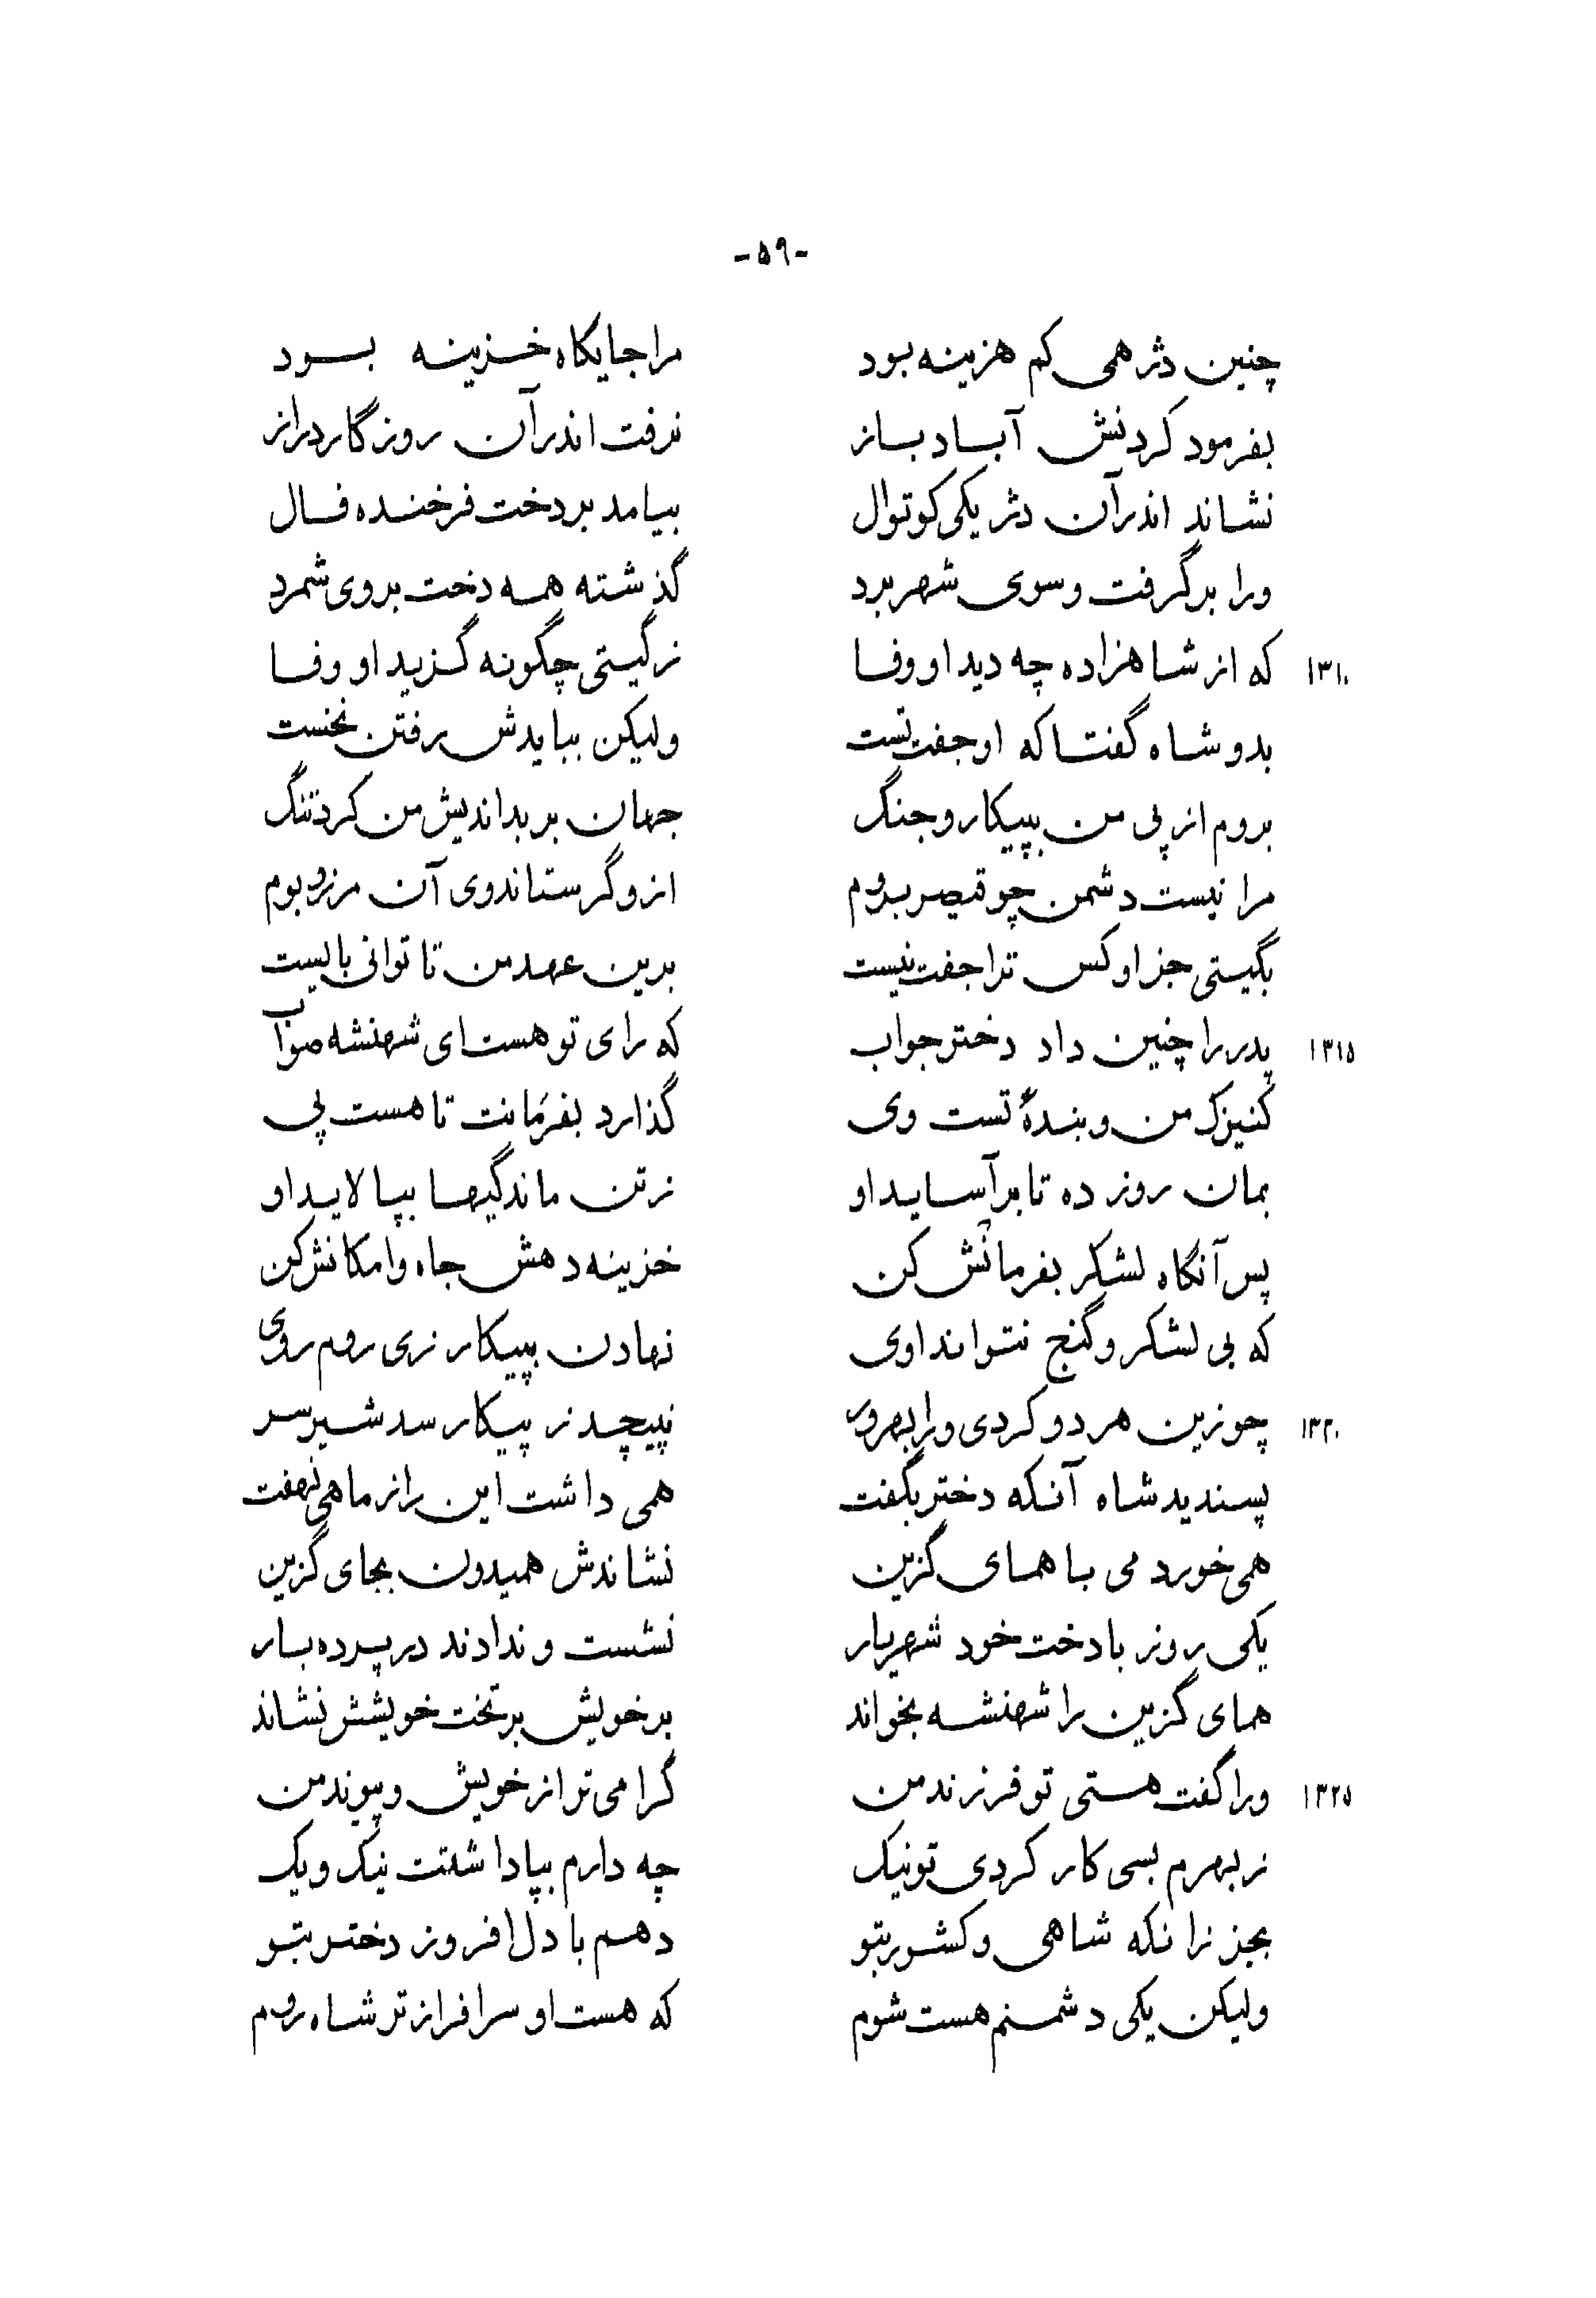 -۵۹-
چنین دژ همی کم هزینه بود مرا جایگاه خزینه بسود
بفرمود کردنش آباد باز نرفت اندر آن روزگار دراز
نشاند اندر آن دژ یکی کوتوال بیامد بر دخت فرخنده فال
ورا برگرفت و سوی شهر برد گذشته همه دخت بروی شمرد
۱۳۱۰ که از شاهزاده چه دید او وفا ز گیتی چگونه گزید او وفا
بدو شاه گفتا که او جفت تست ولیکن ببایدش رفتن نخست
بروم از پی من بپیکار و جنگ جهان بر بداندیش من کرد تنگ
مرا نیست دشمن چو قیصر بروم ازو گر ستاند وی آن مرز و بوم
بگیتی جز او کس ترا جفت نیست برین عهد من تا توانی بایست
۱۳۱۵ پدر را چنین داد دختر جواب که رای تو هست ای شهنشه صواب
کنیزک من و بندهٔ تست وی گذارد بفرمانت تا هست پی
بمان روز ده تا بر آساید او ز تن ماندگیها بپالاید او
پس آنگاه لشکر بفرمانش کن خزینه دهش جاه و امکانش کن
که بی لشکر و گنج نتواند اوی نهادن بپیکار زی روم روی
۱۳۲۰ چو زین هر دو کردی ورا بهره‌ور نپیچد ز پیکار سد شیر سر
پسندید شاه آنکه دختر بگفت همی داشت این راز ماهی نهفت
همی خورد می با همای گزین نشاندش همیدون بجای گزین
یکی روز با دخت خود شهریار نشست و ندادند در پرده بار
همای گزین را شهنشه بخواند بر خویش بر تخت خویشش نشاند
۱۳۲۵ ورا گفت هستی تو فرزند من گرامی‌تر از خویش و پیوند من
ز بهرم بسی کار کردی تو نیک چه دارم بپاداشتت نیک و یک
بجز زانکه شاهی و کشور بتو دهم با دل‌افروز دختر بتو
ولیکن یکی دشمنم هست شوم که هست او سرافراز تر شاه روم